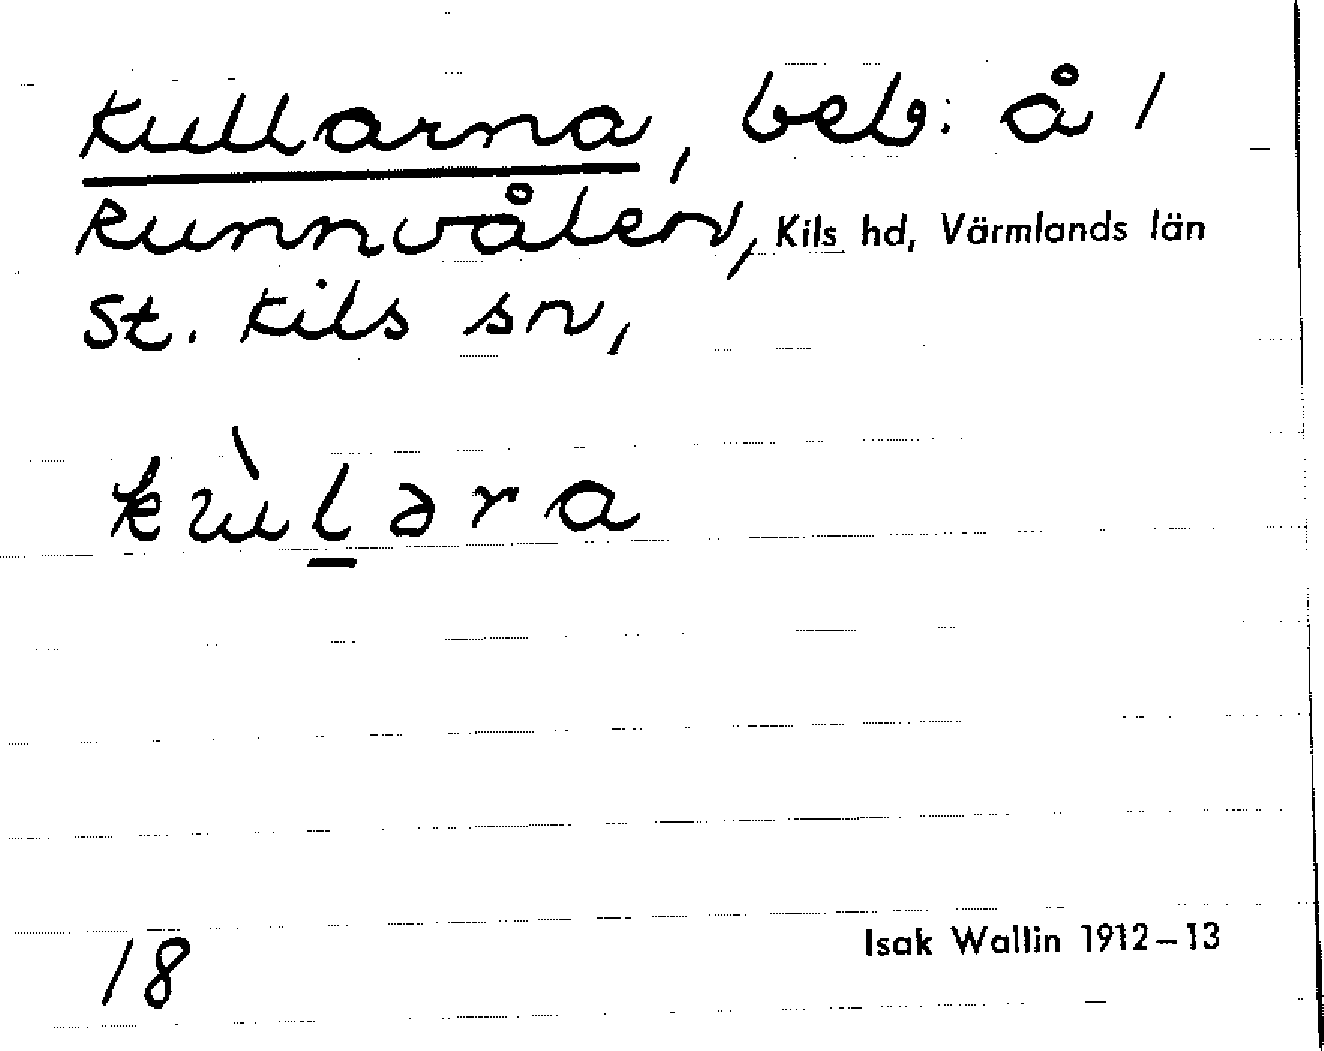 Kullarna, beb: å 1
Runnvålen, Kils hd, Värmlands län
St. Kils sn,
kùləra
18
Isak Wallin 1912–13